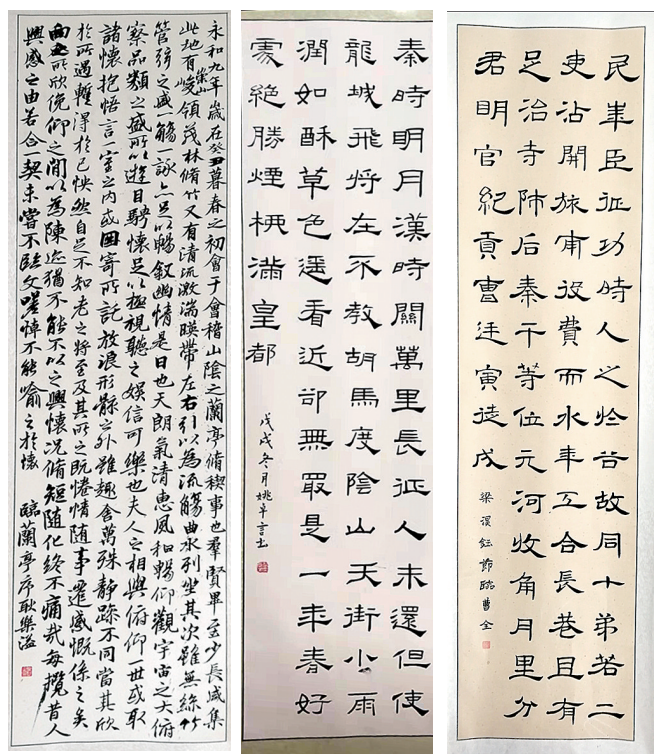 永和九年歲在癸丑暮春之初會于會稽山陰之蘭亭脩稧事也羣賢畢至少長咸集
此地有崇山峻領茂林脩竹又有清流激湍暎帶左右引以為流觴曲水列坐其次雖無絲竹
管弦之盛一觴一詠亦足以暢敘幽情是日也天朗氣清惠風和暢仰觀宇宙之大俯
察品類之盛所以遊目騁懷足以極視聽之娛信可樂也夫人之相與俯仰一世或取
諸懷抱悟言一室之內或因寄所託放浪形骸之外雖趣舍萬殊靜躁不同當其欣
於所遇暫得於己怏然自足不知老之將至及其所之既惓情隨事遷感慨係之矣
向之所欣俛仰之閒以為陳迹猶不能不以之興懷況脩短隨化終不痛哉每攬昔人
興感之由若合一契未嘗不臨文嗟悼不能喻之於懷
臨蘭亭序耿樂溢
秦時明月漢時關萬里長征人未還但使
龍城飛將在不教胡馬度陰山天街小雨
潤如酥草色遥看近卻無最是一年春好
處絕勝煙柳滿皇都
戊戌冬月姚卓言书
民年臣征功時人之於谷故同十弟若二
吏沾開旅甯役費而水年工合長巷且有
足治寺肺后秦干等位元河收角月里分
君明官紀貢曹廷寅徒戍
梁溪鈺臨曹全